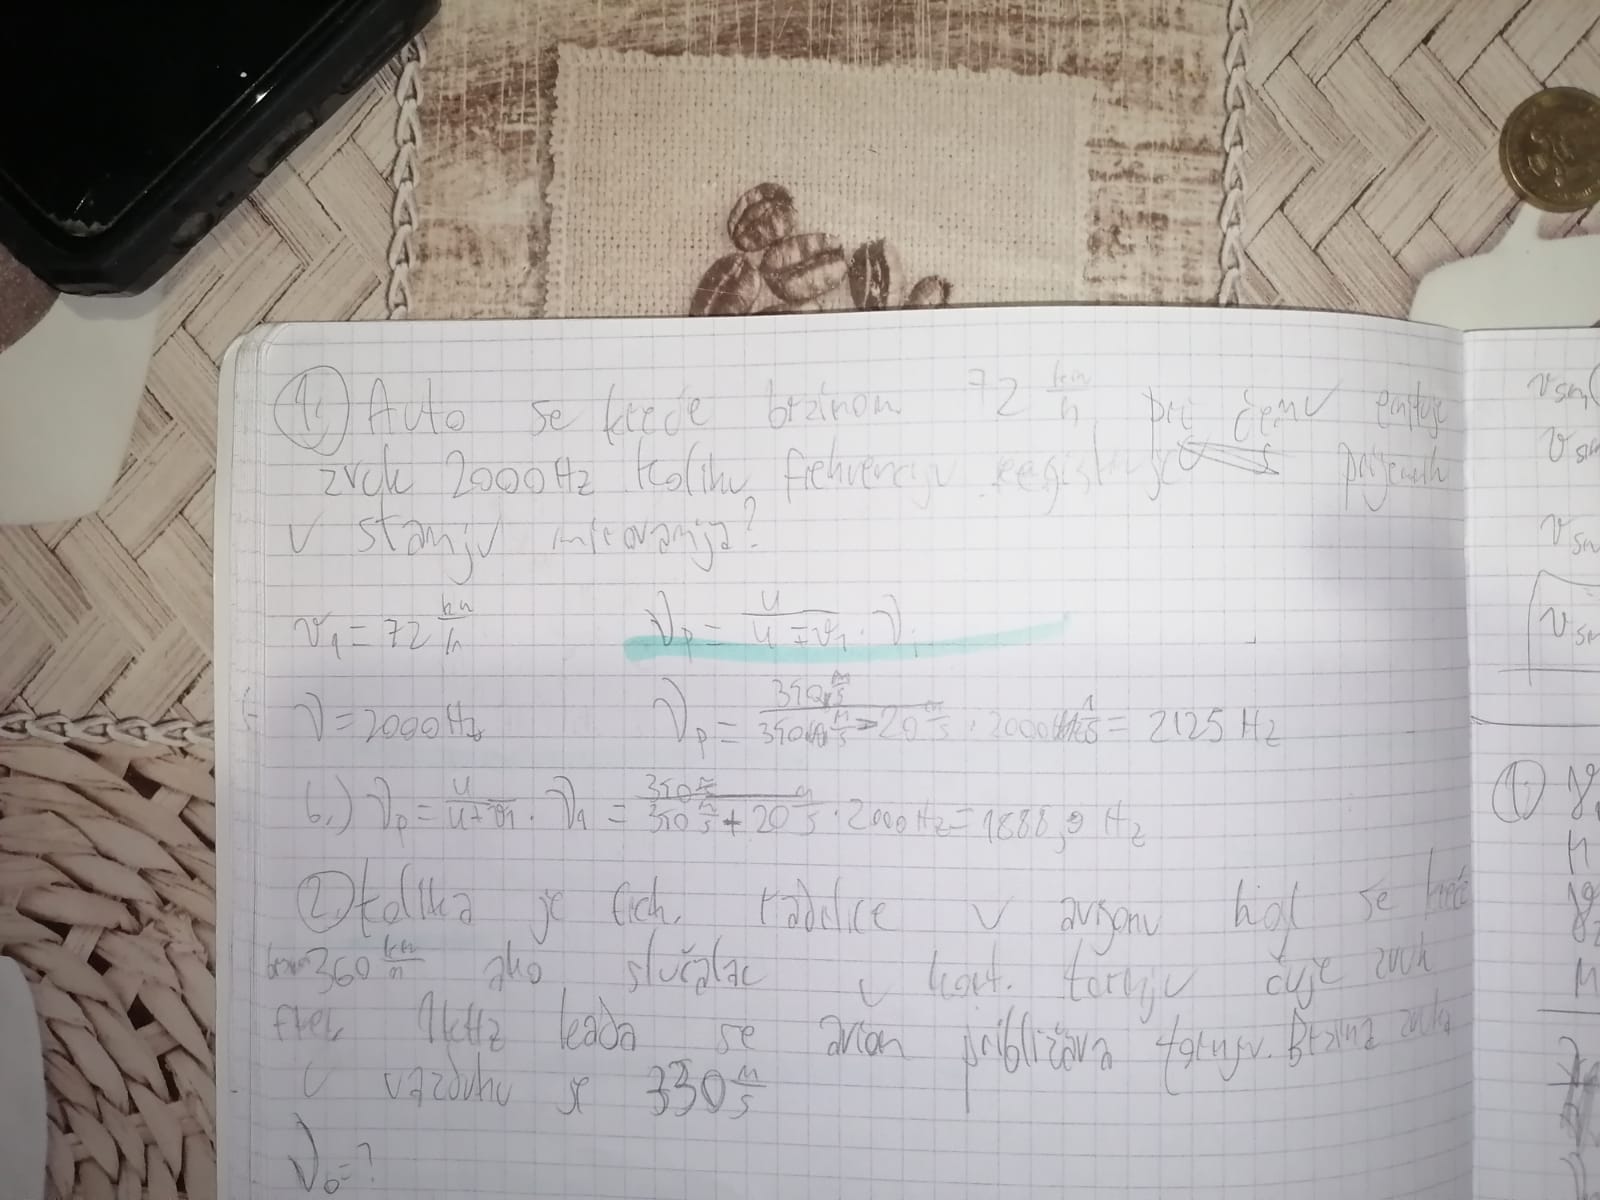 1. Auto se kreće brzinom 72 km/h pri čemu emituje
zvuk 2000Hz Koliku frekvenciju registruje prijemnik
u stanju mirovanja?
v₁ = 72 km/h νp = u/(u∓v₁) · νi
ν = 2000Hz νp = 340 m/s / (340 m/s - 20 m/s) · 2000 1/s = 2125 Hz
b.) νp = u/(u+v₁) · ν₁ = 340 m/s / (340 m/s + 20 m/s) · 2000 Hz = 1888,9 Hz
2. Kolika je frek. u avionu koji se kreće
360 km/h ako slušalac u kont. tornju čuje zvuk
frek. 1kHz kada se avion približava tornju. Brzina zvuka
u vazduhu je 330 m/s
ν₀ = ?
vsn
vsn
vsn
vsn
1.